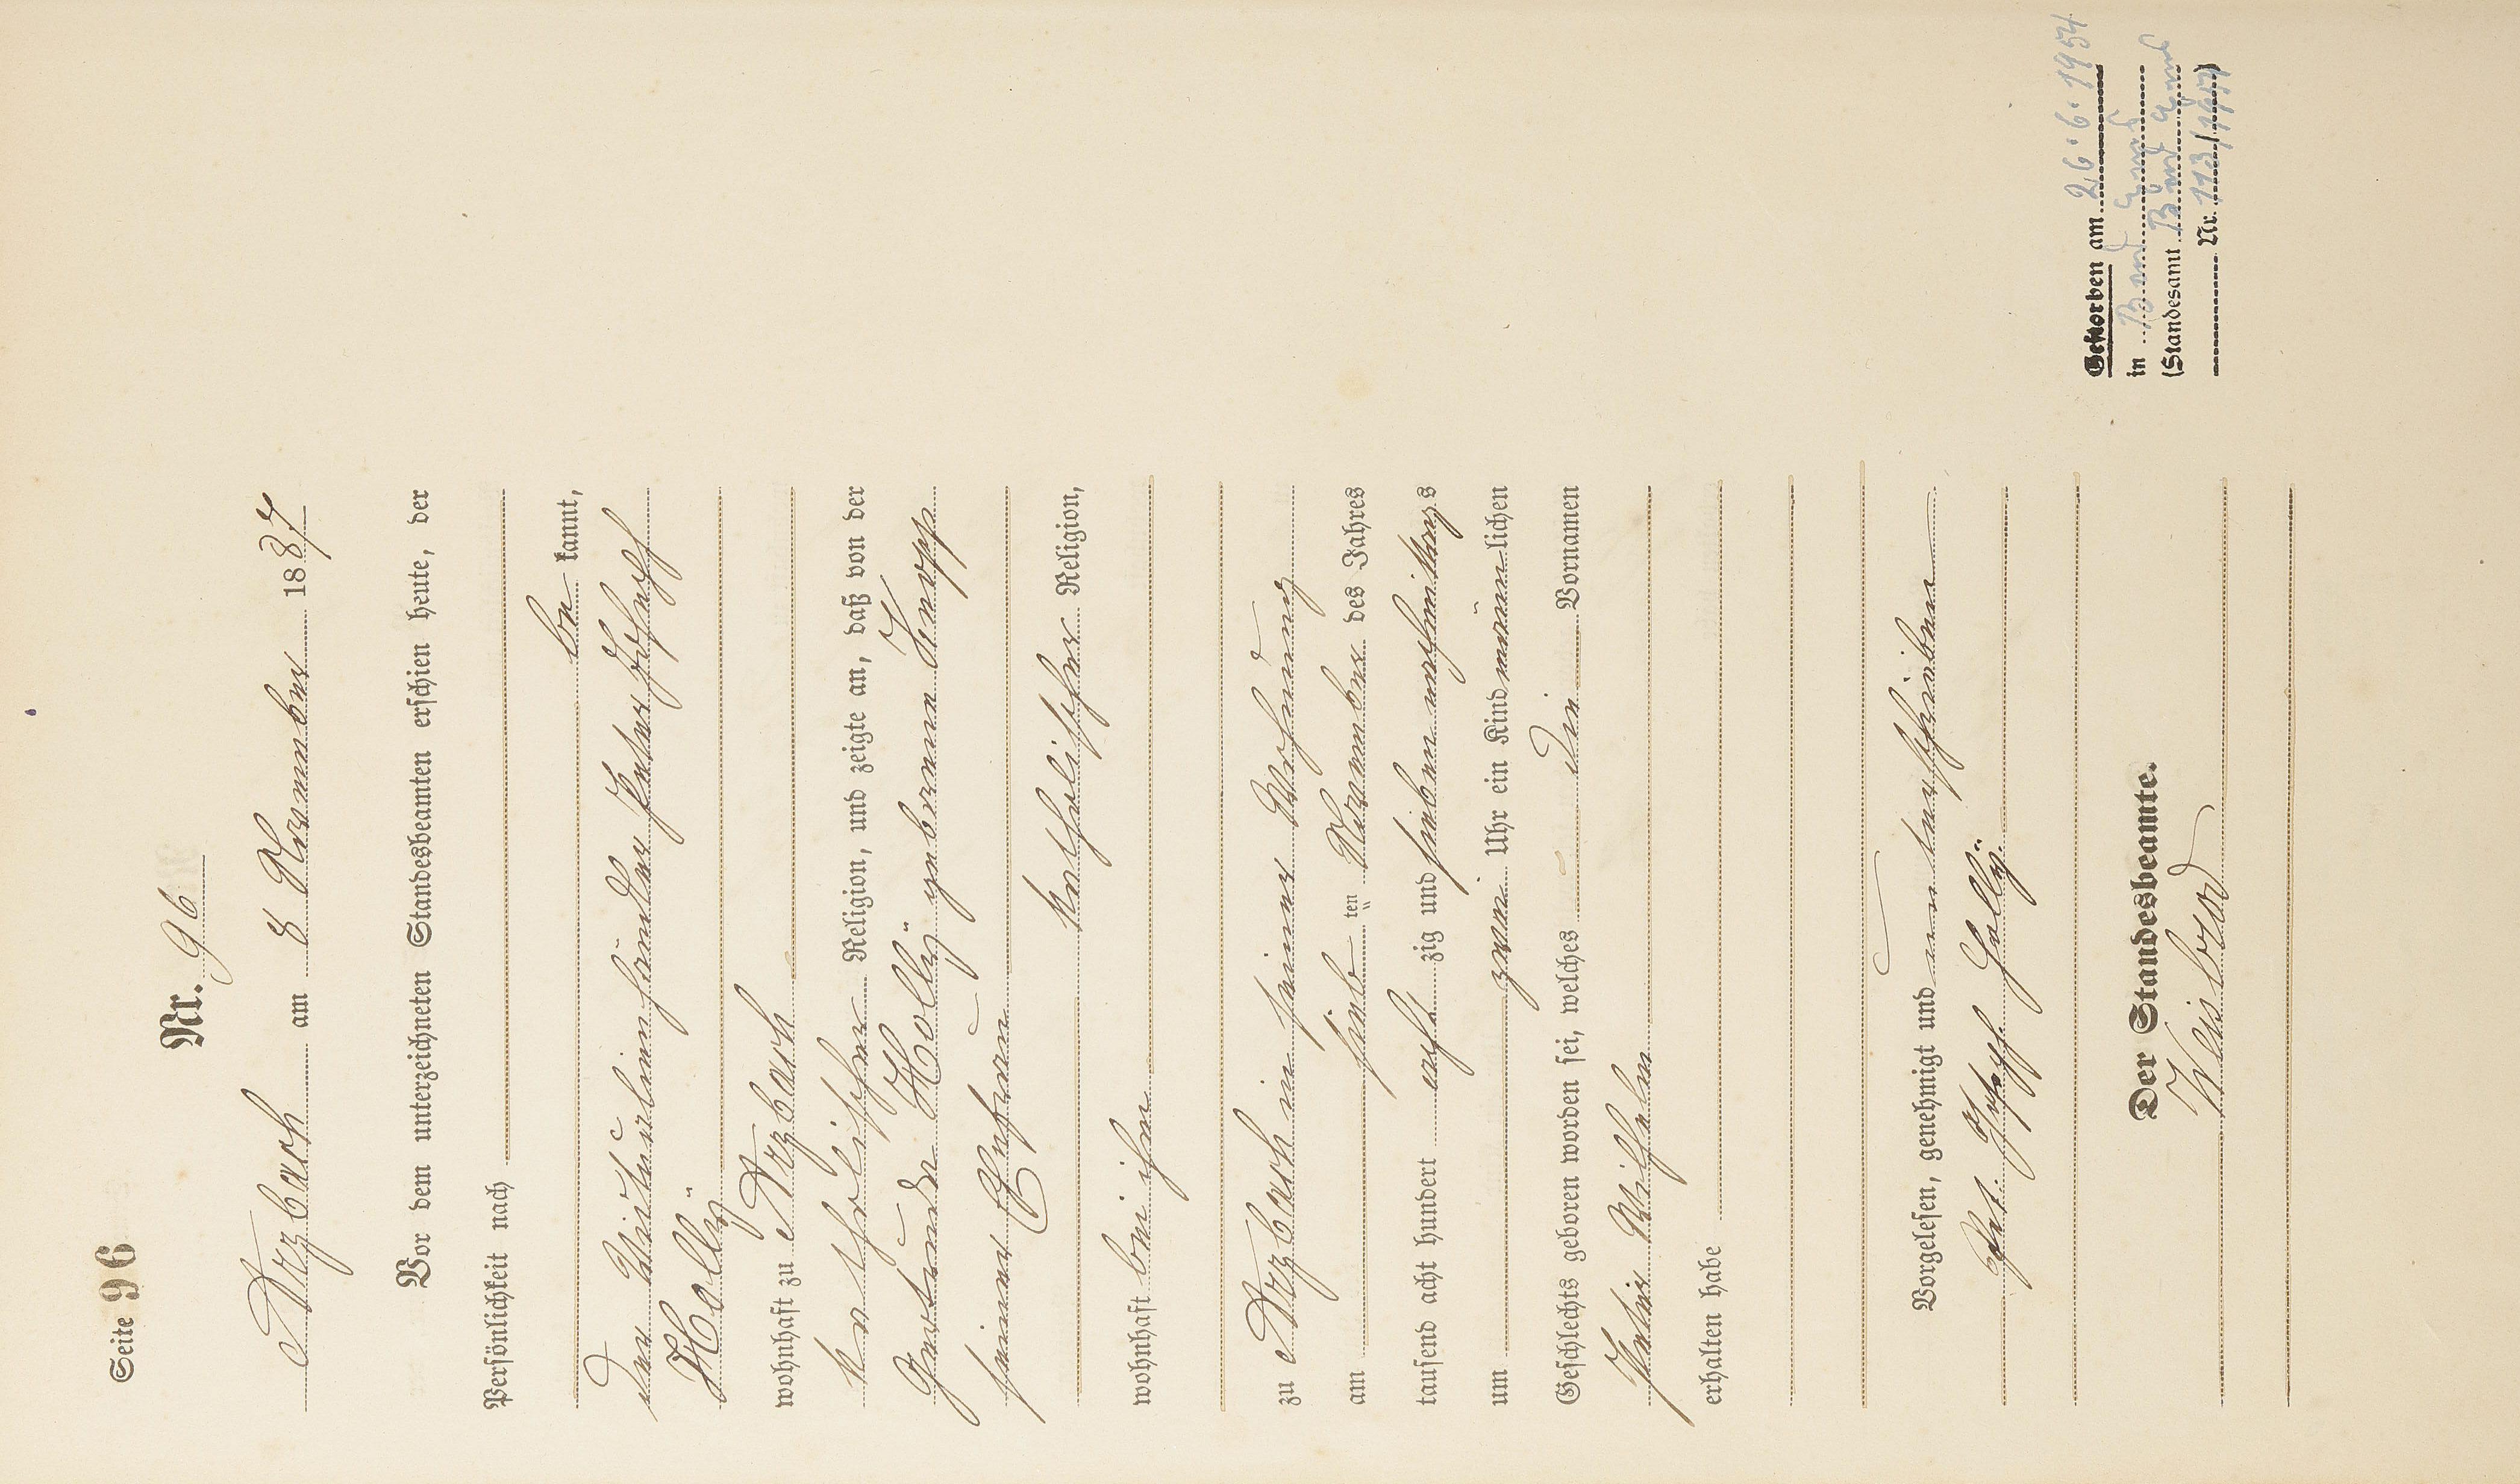 Seite 96
Nr. 96
Arzbach am 8 November 1887
Vor dem unterzeichneten Standesbeamten erschien heute, der
Persönlichkeit nach
be kannt,
der Mutterfamhändler Peter Joseph
Holly
wohnhaft zu Arzbach
katholischer Religion, und zeigte an, daß von der
Gertrude Holly geborenen Knopp
seiner Ehefrau
katholischer Religion,
wohnhaft bei ihm
zu Arzbach in seiner Wohnung
am sieb ten November des Jahres
tausend acht hundert acht zig und sieben nachmittags
um zwei Uhr ein Kind männlichen
Geschlechts geboren worden sei, welches die Vornamen
Peter Wilhelm
erhalten habe
Vorgelesen, genehmigt und unterschrieben
Pet. Joseph Holly.
Der Standesbeamte.
Weisbrod
Gestorben am 26.6.1954
in Bad Ems
(Standesamt Bad Ems
Nr. 113/1954)